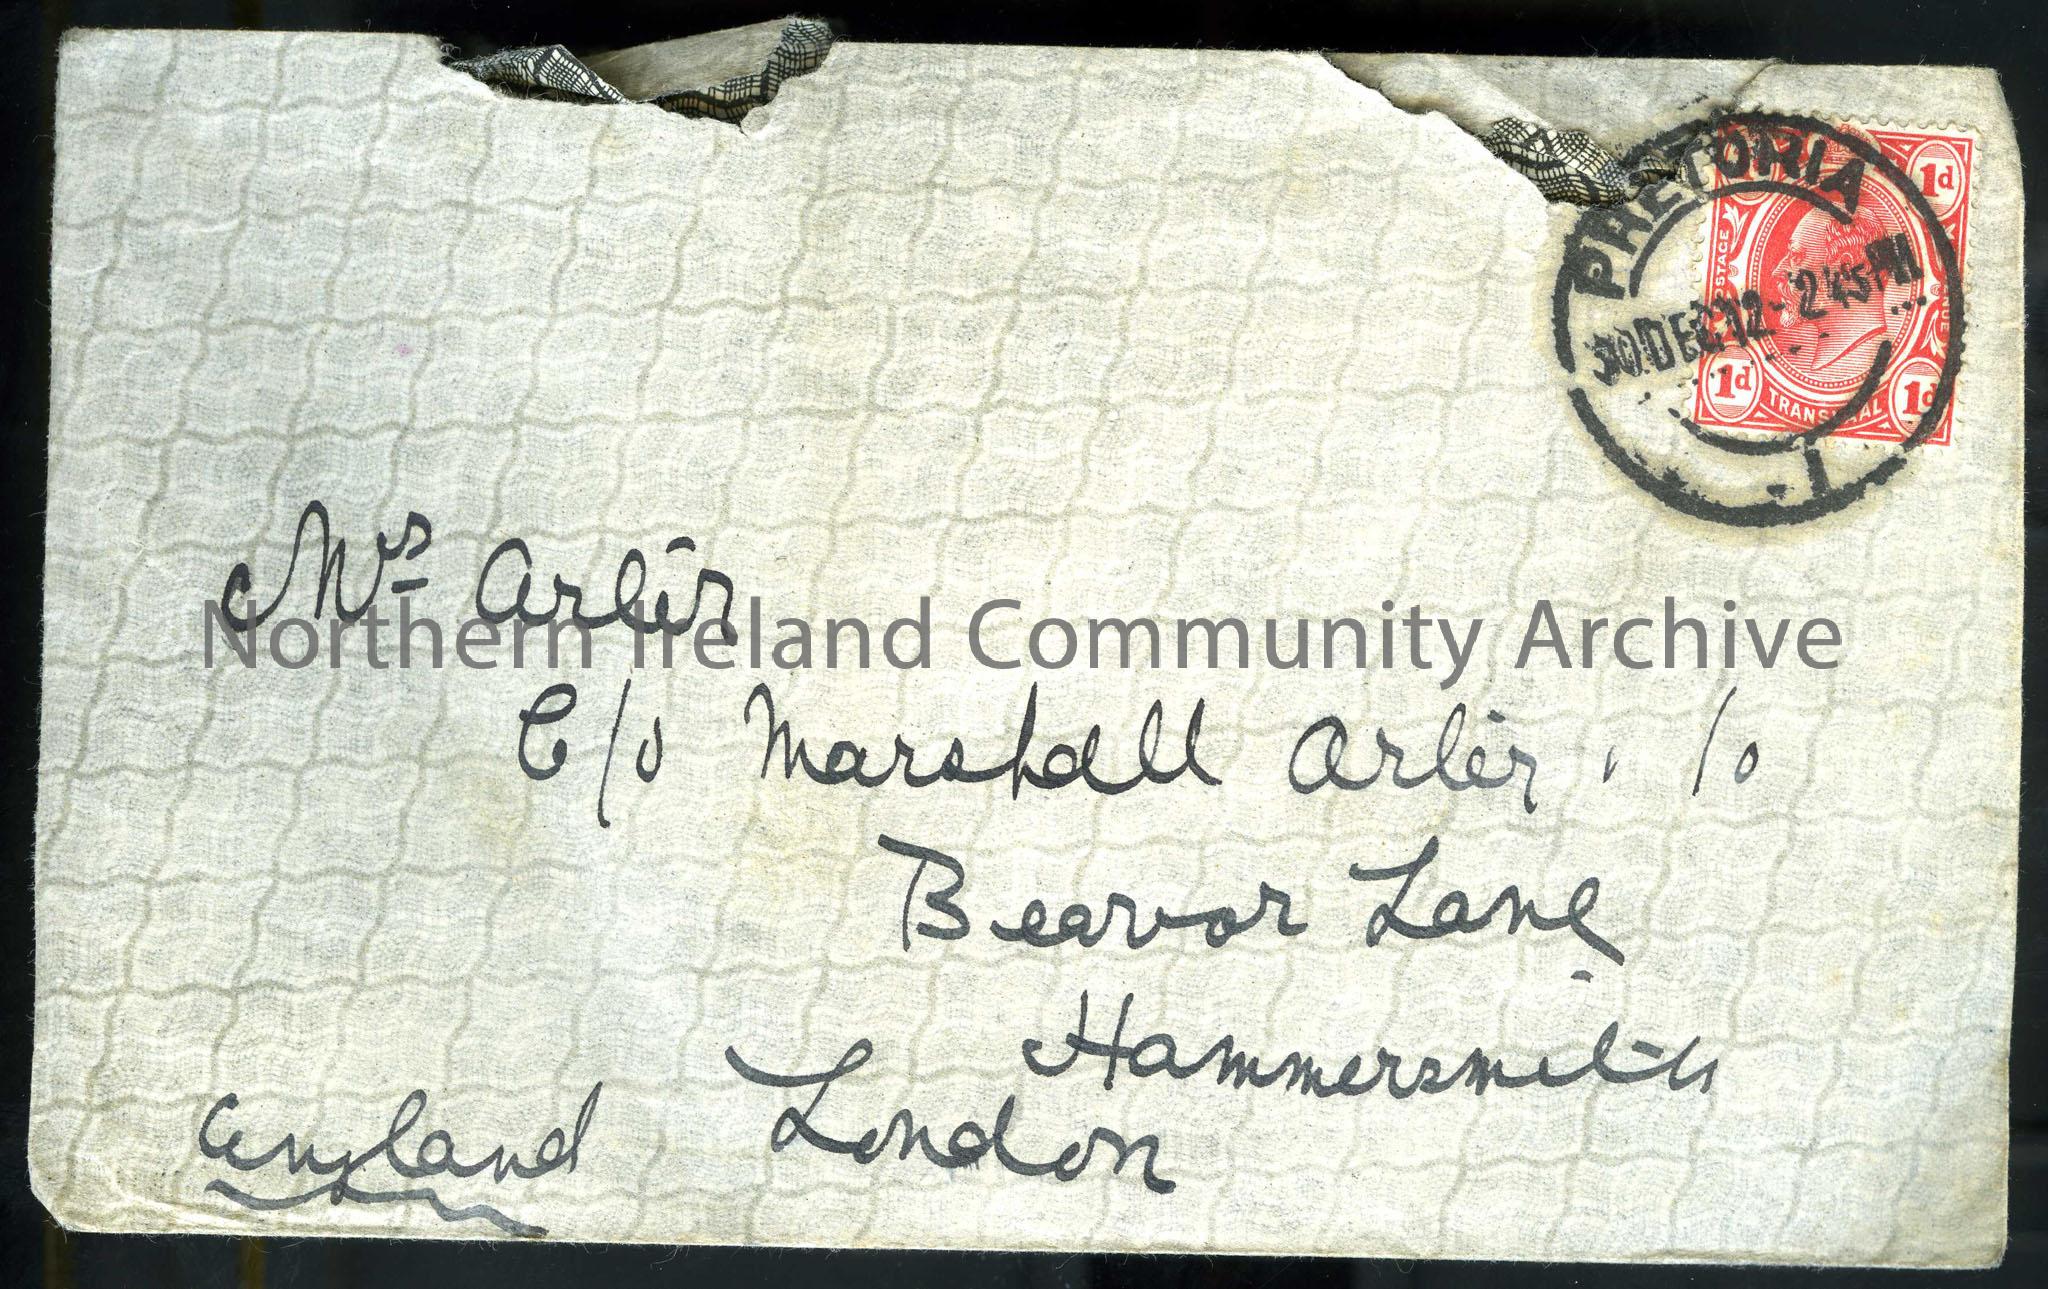 PRETORIA
30 DEC 12 - 2 45 PM
1
1d
POSTAGE
1d
TRANSVAAL
1d
Mrs Arlér
Northern Ireland Community Archive
C/o Marshall Arlér . /o
Beavor Lane
Hammersmith
London
England